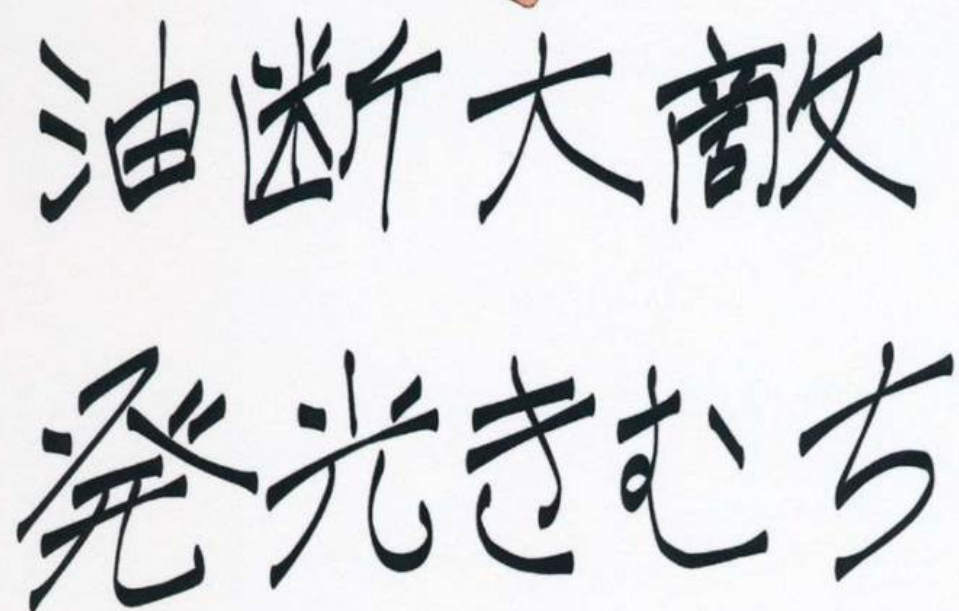 油断大敵
発光きむち